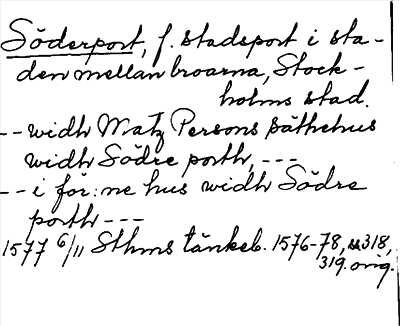 Söderport, f. stadsport i sta-
den mellan broarna, Stock-
holms stad.
-- widh Matz Persons säthehus
widh Södre porth, ---
-- i för:ne hus widh Södre
porth ---
1577 6/11 Sthms tänkeb. 1576-78, s. 318,
319. orig.